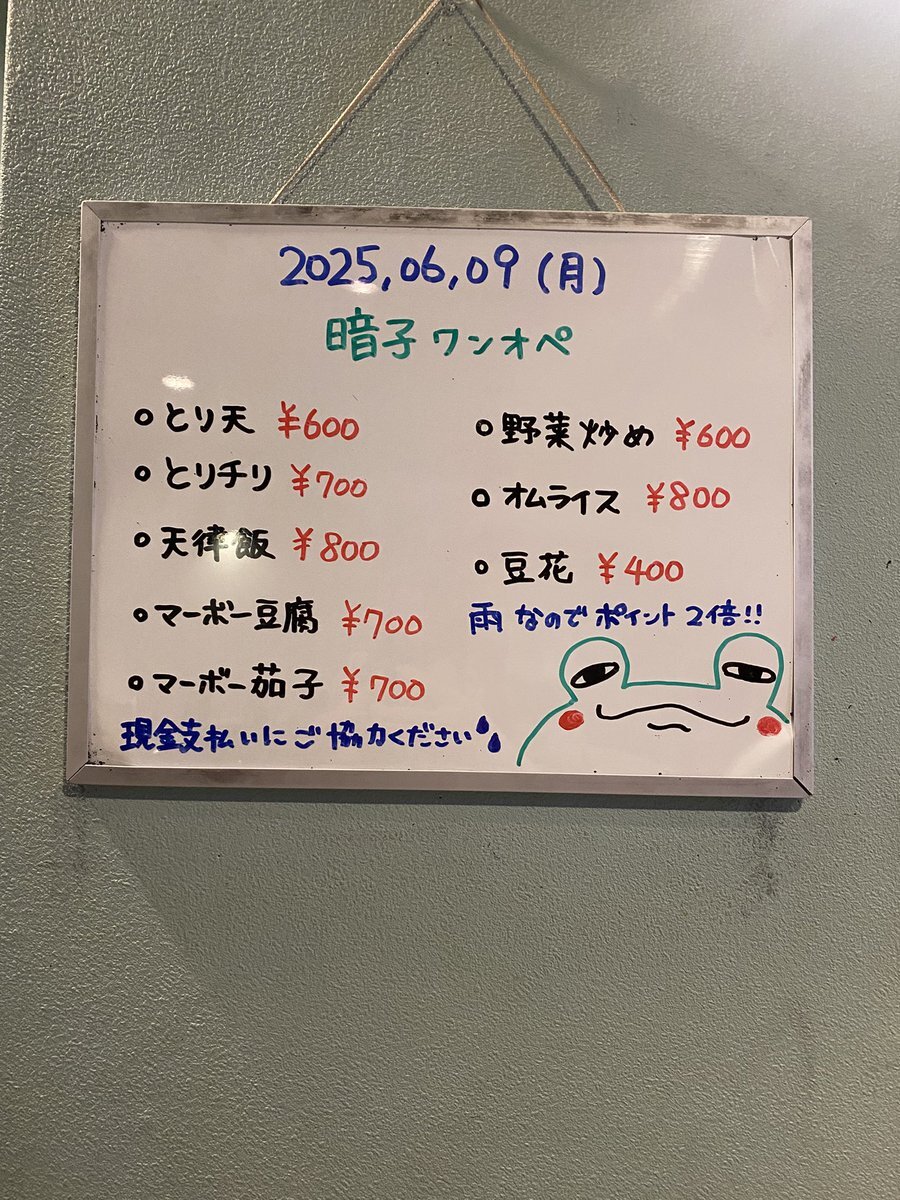 2025.06.09 (月)
暗子ワンオペ
○とり天 ¥600
○とりチリ ¥700
○天津飯 ¥800
○マーボー豆腐 ¥700
○マーボー茄子 ¥700
現金支払いにご協力ください
○野菜炒め ¥600
○オムライス ¥800
○豆花 ¥400
雨なのでポイント2倍!!